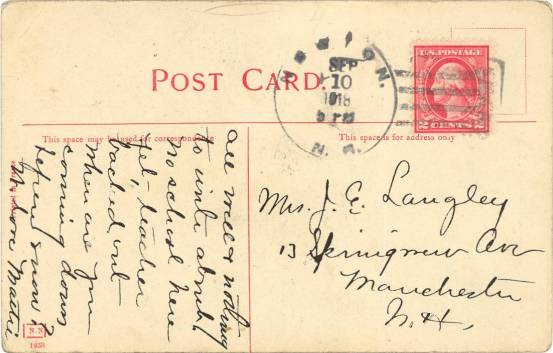 POST CARD.
SEP
10
1918
N. H.
U.S. POSTAGE
2 CENTS 2
This space may be used for correspondence
This space is for address only
all well & nothing
to write about!
No school here
yet - teacher
backed out
When are you
coming down
before snow?
love Mattie
Mrs. J. E. Langley
13 Ave
Manchester
N.H.
N.N